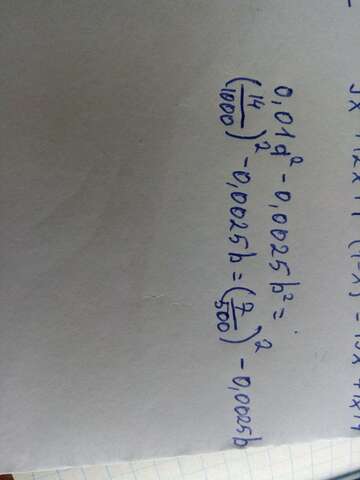 0,01a² - 0,0025b² =
(14/1000)² - 0,0025b = (7/500)² - 0,0025b